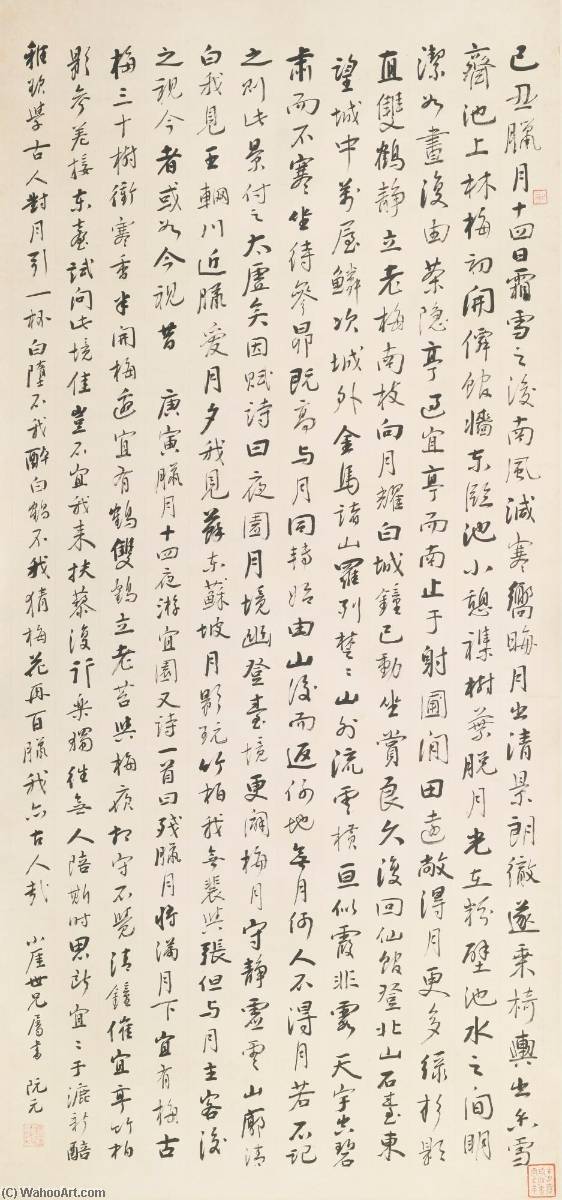 己丑臘月十四日霜雪之後南風減寒嚮晦月出清景朗徹遂乘椅輿出示雪
齋池上林梅初開僻館牆東臨池小憩襍樹葉脫月光在粉壁池水之間明
潔如晝復由葉隱亭過宜亭而南止于射圃閒田遠敞得月更多綠杉影
直雙鶴靜立老梅南枝向月耀白城鐘已動坐賞良久復回仙館登北山石臺東
望城中萬屋鱗次城外金馬諸山羅列楚楚山外流雲橫亙似霞非霧天宇空碧
肅而不寒坐待參昴既高與月同轉始由山後而返何地無月何人不得月若不記
之則此景付之太虛矣因賦詩曰夜園月境幽登臺境更闊梅月守靜虛雲山廓清
白我見王輞川近臘愛月夕我見蘇東坡月影玩竹柏我無裴與張但與月主客後
之視今者或如今視昔 庚寅臘月十四夜游宜園又詩一首曰殘臘月將滿月下宜有梅古
梅三十樹銜寒香半開梅邊宜有鶴雙鶴立老苔與梅痕相守不覺清鐘催宜亭竹柏
影參差接東臺試問此境佳豈不宜我來扶藜復行樂獨往無人陪斯時思所宜宜于漉新醅
雅欲學古人對月引一杯白墮不我醉白鶴不我猜梅花再百臘我亦古人哉 小崖世兄屬書 阮元
© WahooArt.com